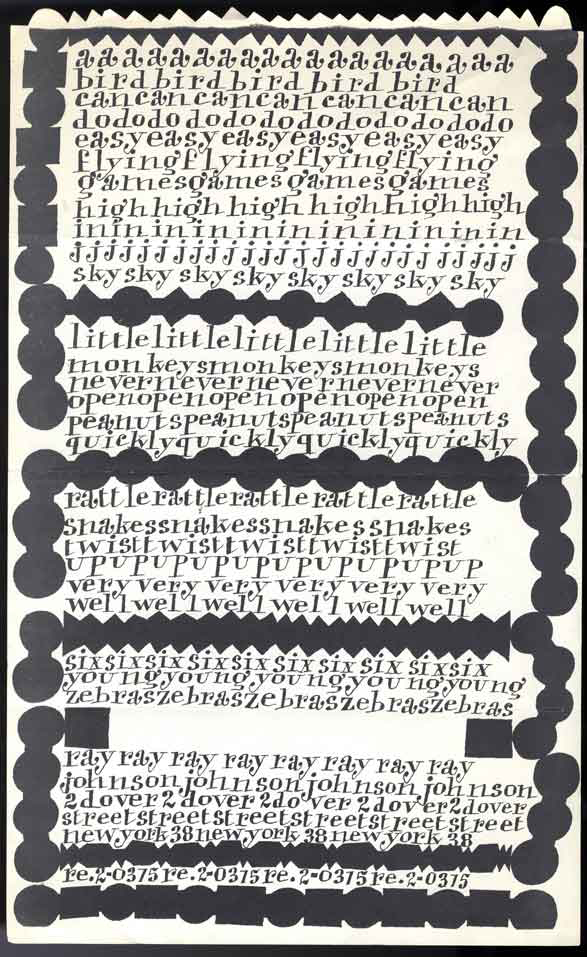 a a a a a a a a a a a a a a a a a a
birdbirdbirdbird bird
cancancancancancancan
dododododododododododo
easyeasyeasyeasyeasyeasy
flyingflyingflyingflying
gamesgamesgamesgames
highhighhighhighhighhigh
ininininininininininin
jjjjjjjjjjjjjjjjjjj
skysky sky sky sky sky sky sky
littlelittlelittlelittlelittle
monkeysmonkeysmonkeys
nevernevernevernevernever
openopenopenopenopenopen
peanutspeanutspeanutspeanuts
quicklyquicklyquicklyquickly
rattlerattlerattlerattlerattle
snakessnakessnakessnakes
twisttwisttwisttwisttwist
upupupupupupupupupup
very very very very very very
wellwellwell well well well
sixsixsixsixsixsixsixsix sixsix
youngyoungyoungyoungyoung
zebraszebraszebraszebraszebras
ray ray ray ray ray ray ray ray
johnson johnson johnson johnson
2dover2dover2dover2dover2dover
streetstreetstreetstreetstreetstreet
newyork38newyork38newyork38
re.2-0375re.2-0375re.2-0375re.2-0375